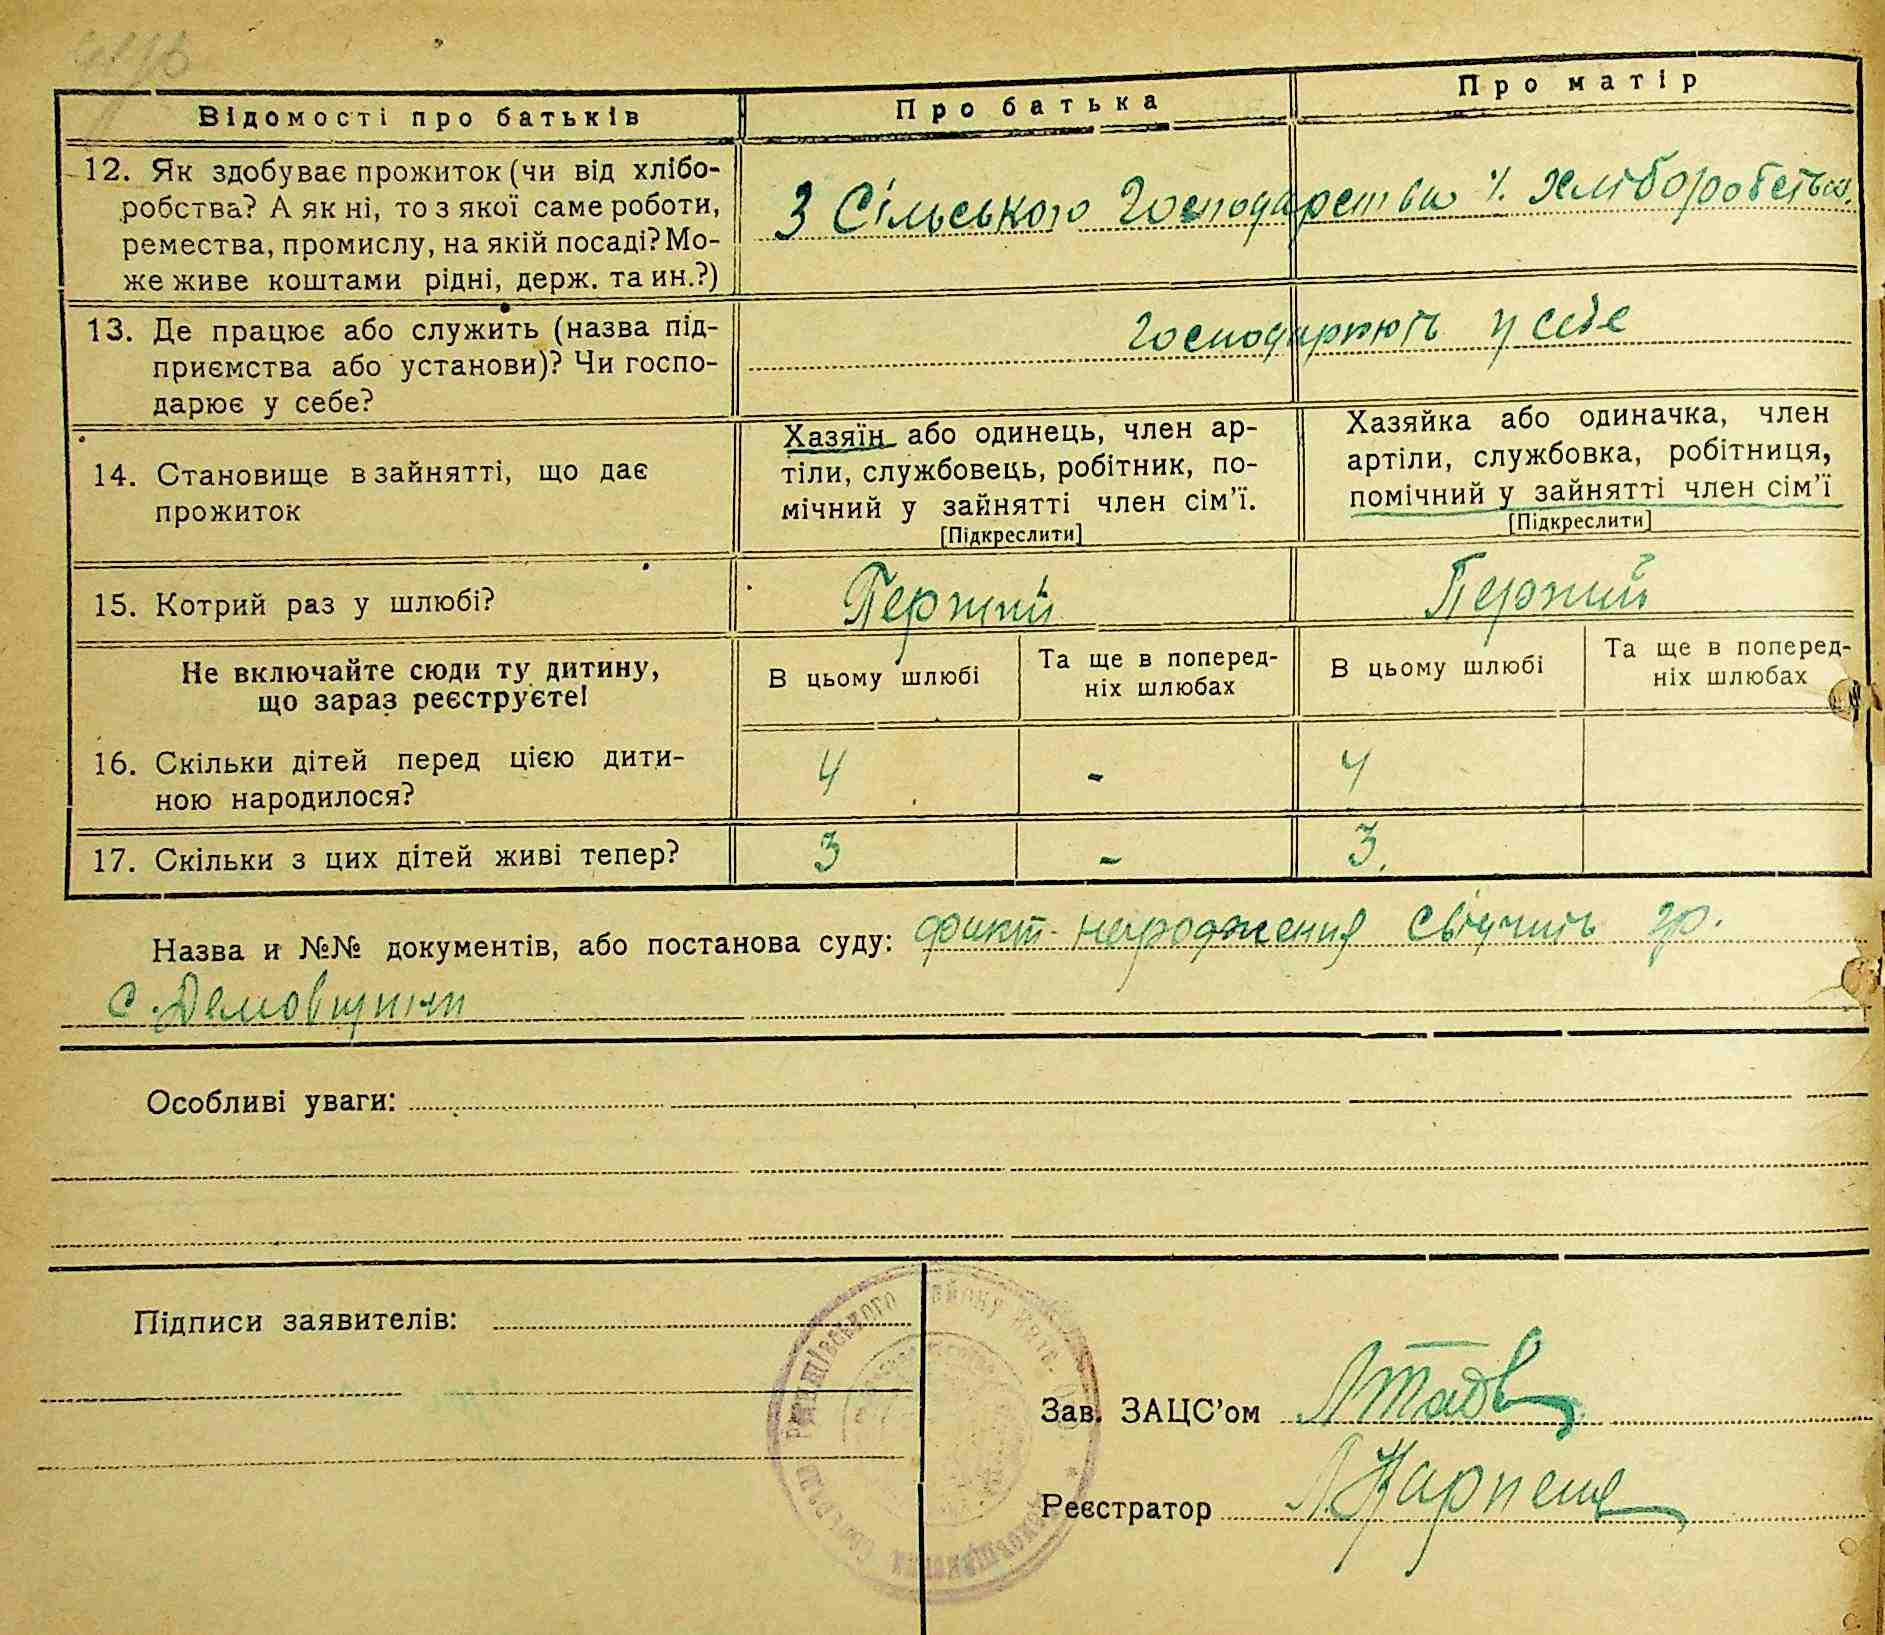 Відомості про батьків
Про батька
Про матір
12. Як здобуває прожиток (чи від хлібо-
робства? А як ні, то з якої саме роботи,
ремества, промислу, на якій посаді? Мо-
же живе коштами рідні, держ. та ин.?)
З Сільського Господарства ч. хліборобства.
13. Де працює або служить (назва під-
приємства або установи)? Чи госпо-
дарює у себе?
Господарюють у себе
14. Становище в зайнятті, що дає
прожиток
Хазяїн або одинець, член ар-
тіли, службовець, робітник, по-
мічний у зайнятті член сім'ї.
[Підкреслити]
Хазяйка або одиначка, член
артіли, службовка, робітниця,
помічний у зайнятті член сім'ї
[Підкреслити]
15. Котрий раз у шлюбі?
Перший
Перший
Не включайте сюди ту дитину,
що зараз реєструєте!
В цьому шлюбі
Та ще в поперед-
ніх шлюбах
В цьому шлюбі
Та ще в поперед-
ніх шлюбах
16. Скільки дітей перед цією дити-
ною народилося?
4
-
4
17. Скільки з цих дітей живі тепер?
3
-
3.
Назва и №№ документів, або постанова суду: факт народження свідчить гр.
Особливі уваги:
Підписи заявителів:
Зав. ЗАЦС'ом
Реєстратор